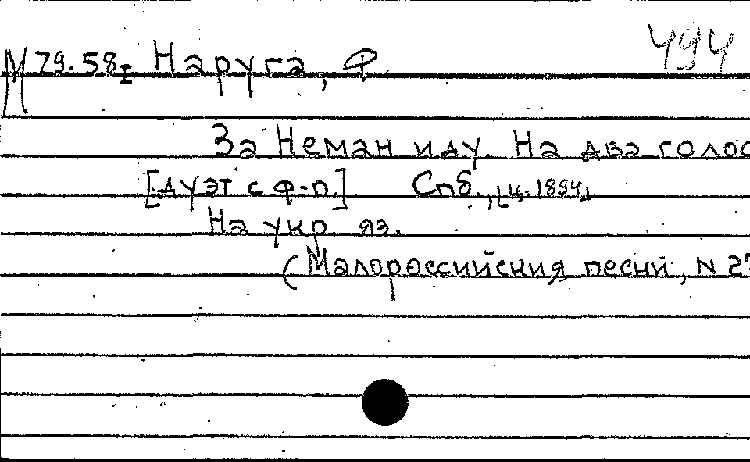 М 79.58 I Наруга, Ф. 494
За Неман иду. На два голос
[дуэт с ф-п.] Спб., [ц. 1894]
На укр. яз.
(Малороссийския песни, N 27